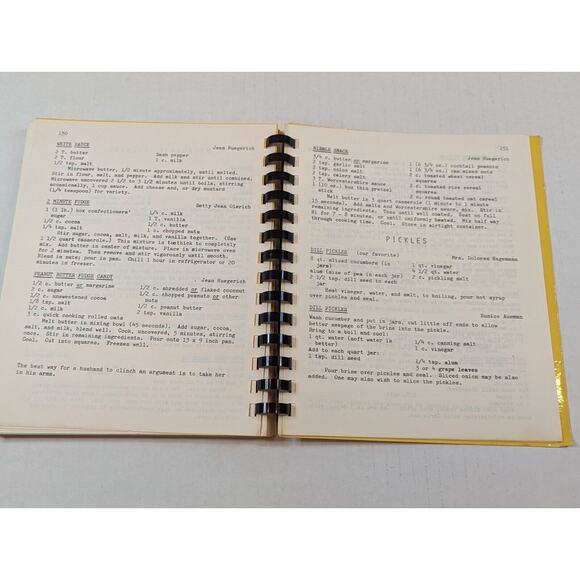 150
WHITE SAUCE
Jean Huegerich
2 T. butter
Dash pepper
2 T. flour
1 c. milk
1/2 tsp. salt
Microwave butter, 1/2 minute approximately, until melted.
Stir in flour, salt, and pepper. Add milk and stir until combined.
Microwave uncovered 2 1/2 to 3 1/2 minutes until boils, stirring
occasionally, 1 cup sauce. Add cheese and, or dry mustard
(1/4 teaspoon) for variety.
2 MINUTE FUDGE
Betty Jean Olerich
1 (1 lb.) box confectioners'
1/4 c. milk
sugar
1 T. vanilla
1/2 c. cocoa
1/2 c. butter
1/4 tsp. salt
1 c. chopped nuts
Stir sugar, cocoa, salt, milk, and vanilla together. (Use
1 1/2 quart casserole.) This mixture is too thick to completely
mix. Add butter in center of mixture. Place in Microwave oven
for 2 minutes. Then remove and stir vigorously until smooth.
Blend in nuts; pour in pan. Chill 1 hour in refrigerator or 20
minutes in freezer.
PEANUT BUTTER FUDGE CANDY
Jean Huegerich
1/2 c. butter or margarine
1/2 c. shredded or flaked coconut
2 c. sugar
1/2 c. chopped peanuts or other
1/2 c. unsweetened cocoa
nuts
1/8 tsp. salt
1/2 c. peanut butter
1/2 c. milk
2 tsp. vanilla
3 c. quick cooking rolled oats
Melt butter in mixing bowl (45 seconds). Add sugar, cocoa,
salt, and milk, blend well. Cook, uncovered, 5 minutes, stirring
once. Stir in remaining ingredients. Pour onto 13 x 9 inch pan.
Cool. Cut into squares. Freezes well.
The best way for a husband to clinch an argument is to take her
in his arms.
151
NIBBLE SNACK
Jean Huegerich
3/4 c. butter or margarine
1 (6 3/4 oz.) cocktail peanuts
2 tsp. garlic salt
1 (6 3/4 oz.) can mixed nuts
2 tsp. onion salt
2 c. toasted wheat cereal
2 tsp. celery salt
squares
3 T. Worcestershire sauce
2 c. toasted rice cereal
1 (10 oz.) but thin pretzel
squares
sticks
2 c. round toasted oat cereal
Melt butter in 3 quart casserole (1 minute to 1 minute
15 seconds). Add salts and Worcestershire sauce, mix. Stir in
remaining ingredients. Toss until well coated. Heat on full
Hi for 7 - 8 minutes, or until uniformly heated. Mix half way
through cooking time. Cool. Store in airtight container.
PICKLES
DILL PICKLES (our favorite)
Mrs. Dolores Hagemann
8 qt. sliced cucumbers (in
1 qt. vinegar
jars)
4 1/2 qt. water
alum (size of pea in each jar)
2 c. pickling salt
2 1/2 tsp. dill seed to each
jar
Heat vinegar, water, and salt, to boiling, pour hot syrup
over pickles and seal.
DILL PICKLES
Eunice Assman
Wash cucumber and put in jars, cut little off ends to allow
better seepage of the brine into the pickle.
Bring to a boil and cool:
1 qt. water (soft water is
1/4 c. canning salt
better)
1 c. vinegar
Add to each quart jar:
1 tsp. dill seed
1/4 tsp. alum
3 or 4 grape leaves
Pour brine over pickles and seal. Sliced onion may be also
added. One may also wish to slice the pickles.